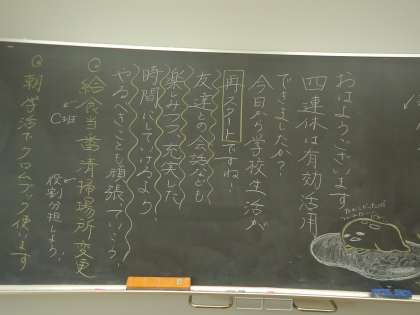 おはようございます
四連休は有効活用
できましたか?
今日から学校生活が
再スタートですね!
友達との会話なども
楽しみつつ、充実した
時間にしていけるよう、
やるべきことも頑張っていこう!
◎給食当番 清掃場所 変更
C班
役割分担しよう。
◎朝学活でクロムブック使います